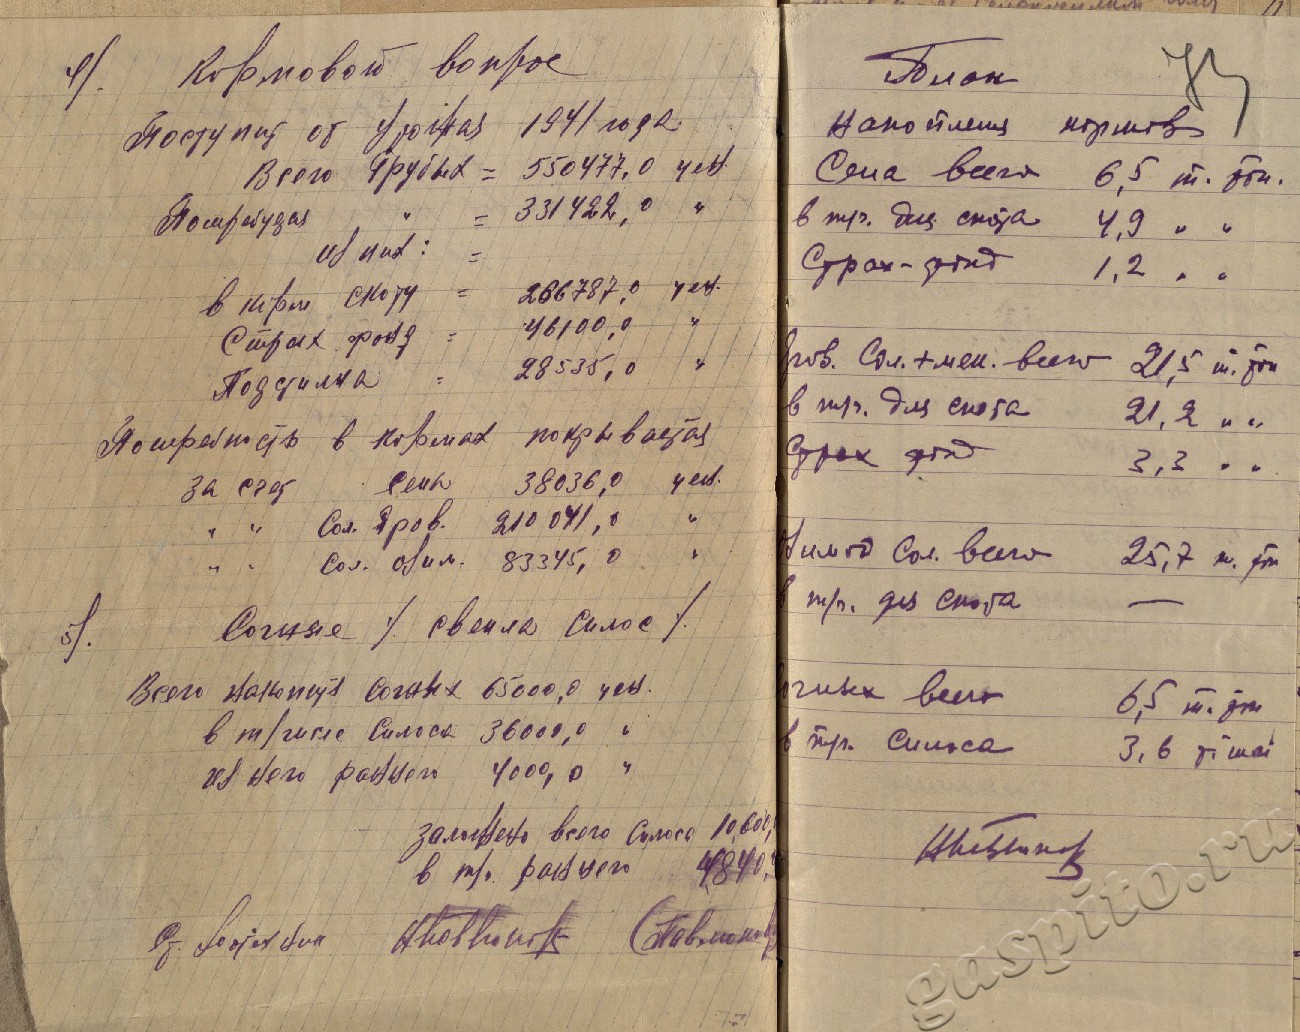 4/. Кормовой вопрос
Поступит от урожая 1941 года
Всего грубых = 550477,0 цен.
Потребуется " = 331422,0 "
из них: =
в корм скоту = 266787,0 цен.
Страх фонд = 46100,0 "
Подстилка = 28535,0 "
Потребность в кормах покрывается
за счет сена 38036,0 цен.
" " Сол. яров. 210041,0 "
" " Сол. озим. 83345,0 "
5/. Сочные /. свекла силос /.
Всего накопить сочных 65000,0 цен.
в т/числе силоса 36000,0 "
из него раннего 4000,0 "
заложено всего силоса 10,600,
в т/ч. раннего 4840,
Ст. зоотехник (Павлюков
План 73
накопления кормов
Сена всего 6,5 т. тон.
в т/ч. для скота 4,9 " "
Страх-фонд 1,2 " "
яров. Сол. + мек. всего 21,5 т. тон
в т/ч. для скота 21,2 " "
Страх фонд 3,3 " "
Озимой Сол. всего 25,7 т. тон
в т/ч. для скота —
сочных всего 6,5 т. тон
в т/ч. силоса 3,6
gaspito.ru